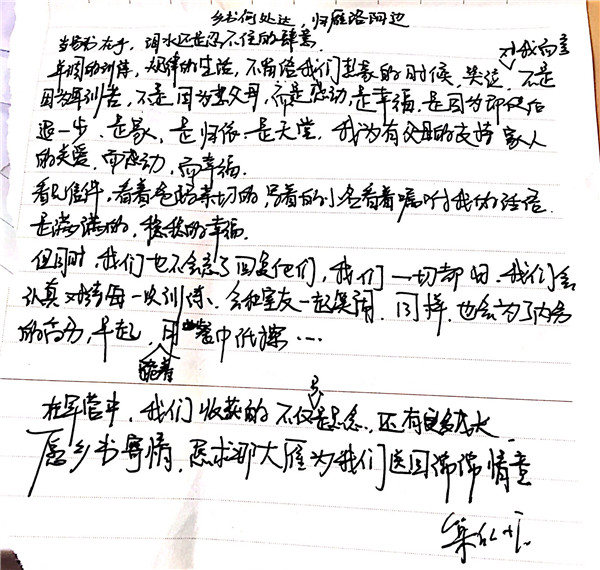 乡书何处达,归雁洛阳边
当书在手,泪水还是忍不住的肆意.
单调的训练,规律的生活,不留给我们想家的时候.哭泣,不是 对我而言
因为军训苦,不是因为想父母,而是感动,是幸福.是因为即使后
退一步,是家,是归依是天堂.我为有父母的支持家人
的关爱,而感动,而幸福.
看见信件,看着爸妈亲切的,写着的小名看着嘱咐我的话语.
是满满的,稳稳的幸福.
但同时,我们也不会忘了回复他们,我们一切都好.我们会
认真对待每一次训练、会和室友一起笑闹.同样,也会为了内务
的高分,早起,用 中纸擦…
跪着
在军营中,我们收获的不仅是思念,还有良多成长.
愿乡书寄情,恳求那大雁为我们送回绵绵情意